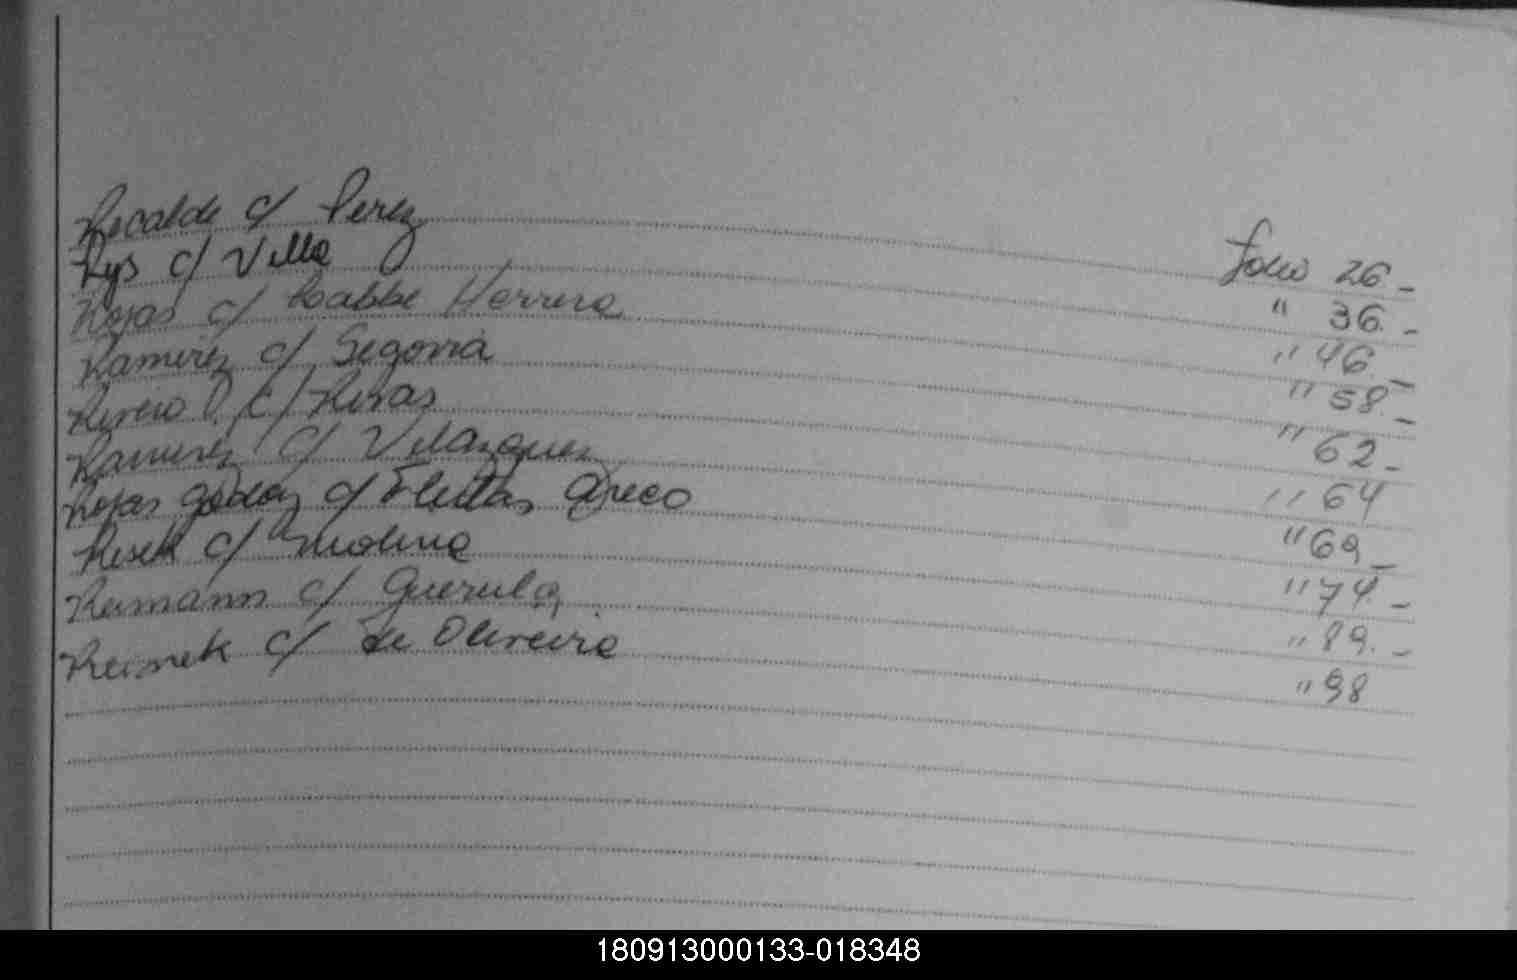 Recalde c/ Perez folio 26.-
Rys c/ Villa " 36.-
Rojas c/ Labbe Herrera " 46.-
Ramirez c/ Segovia " 58.-
c/ Rivas " 62-
Ramirez c/ Velazquez " 64
Rojas Godoy c/ Fleitas Greco " 69.-
c/ Molina " 74.-
Reimann c/ " 89.-
c/ de Oliveira " 98
180913000133-018348